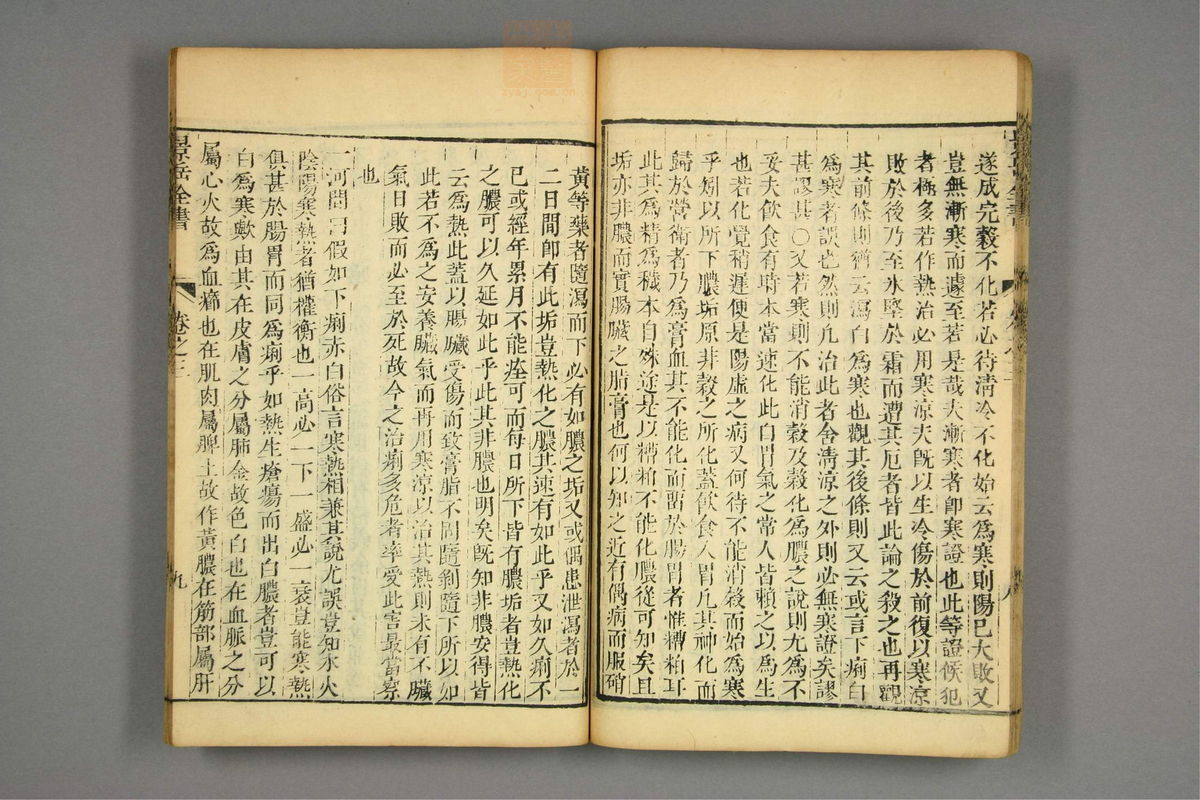 遂成完穀不化若必待淸冷不化始云爲寒則陽已大敗又
豈無漸寒而遽至若是哉夫漸寒者卽寒證也此等證候犯
者極多若作熱治必用寒涼夫旣以生冷傷於前復以寒涼
敗於後乃至氷堅於霜而遭其厄者皆此論之殺之也再觀
其前條則猶云瀉白爲寒也觀其後條則又云或言下痢白
爲寒者誤也然則凡治此者舍淸涼之外則必無寒證矣謬
甚謬甚〇又若寒則不能消穀及穀化爲膿之說則尤爲不
妥夫飮食有時本當速化此自胃氣之常人皆賴之以爲生
也若化覺稍遲便是陽虛之病又何待不能消穀而始爲寒
乎矧以所下膿垢原非穀之所化蓋飮食入胃凡其神化而
歸於營衛者乃爲膏血其不能化而留於腸胃者惟糟粕耳
此其爲精爲穢本自殊途是以糟粕不能化膿從可知矣且
垢亦非膿而實腸臟之脂膏也何以知之近有偶病而服硝
景岳全書
卷之
八
黃等藥者隨瀉而下必有如膿之垢又或偶患泄瀉者於一
二日間卽有此垢豈熱化之膿其速有如此乎又如久痢不
已或經年累月不能痊可而每日所下皆有膿垢者豈熱化
之膿可以久延如此乎此其非膿也明矣旣知非膿安得皆
云爲熱此蓋以腸臟受傷而致膏脂不固隨剝隨下所以如
此若不爲之安養臟氣而再用寒涼以治其熱則未有不臟
氣日敗而必至於死故今之治痢多危者率受此害最當察
也
一河間曰假如下痢赤白俗言寒熱相兼其說尤誤豈知水火
陰陽寒熱者猶權衡也一高必一下一盛必一衰豈能寒熱
俱甚於腸胃而同爲痢乎如熱生瘡瘍而出白膿者豈可以
白爲寒歟由其在皮膚之分屬肺金故色白也在血脈之分
屬心火故爲血癤也在肌肉屬脾土故作黃膿在筋部屬肝
景岳全書
卷之
九